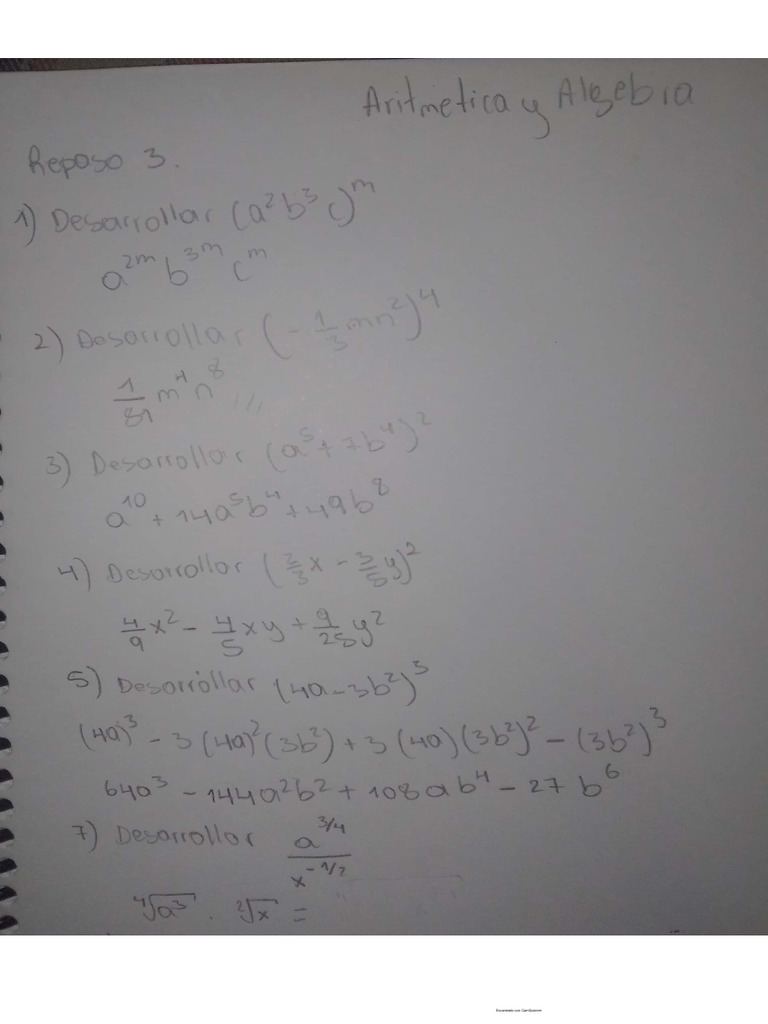 Aritmetica y Algebra
Reposo 3.
1) Desarrollar (a²b³c)ᵐ
a²ᵐ b³ᵐ cᵐ
2) Desarrollar (-1/3 mn²)⁴
1/81 m⁴n⁸ ///
3) Desarrollar (a⁵+7b⁴)²
a¹⁰+14a⁵b⁴+49b⁸
4) Desarrollar (2/3 x - 3/5 y)²
4/9 x² - 4/5 xy + 9/25 y²
5) Desarrollar (4a-3b²)³
(4a)³ - 3(4a)²(3b²) + 3(4a)(3b²)² - (3b²)³
64a³ - 144a²b² + 108ab⁴ - 27b⁶
7) Desarrollar a^(3/4) / x^(-1/2)
⁴√a³ . ²√x =
Escaneado con CamScanner